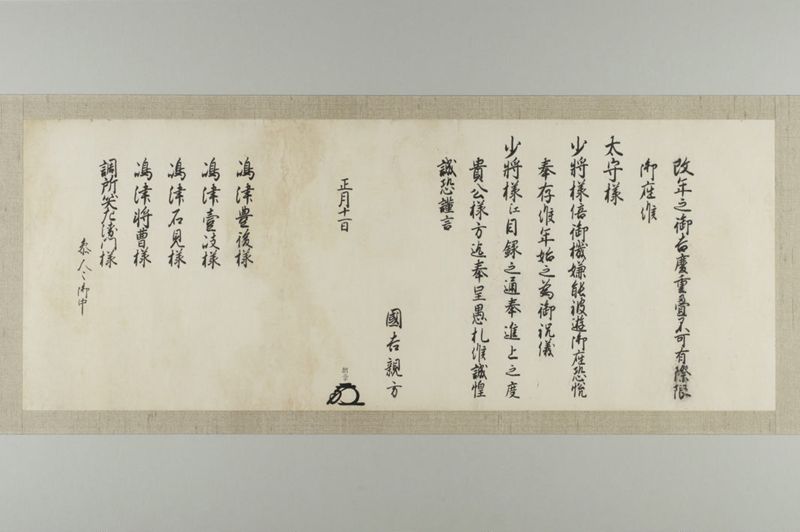 改年之御吉慶重畳不可有際限
御座候
太守様
少将様倍御機嫌能被遊御座恐悦
奉存候年始之為御祝儀
少将様江目録之通奉進上之度
貴公様方迄奉呈愚札候誠惶
誠恐謹言
國吉親方
正月十一日
朝章
嶋津豊後様
嶋津壹岐様
嶋津石見様
嶋津将曹様
調所笑左衛門様
参人々御中